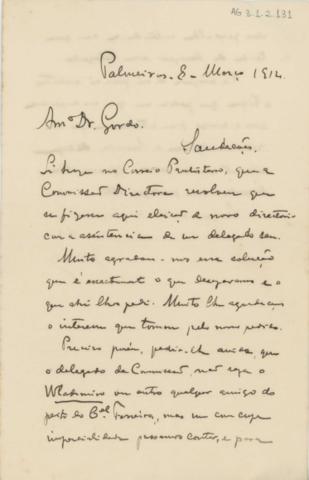 AG 3.1.2.131
Palmeiras - 8 - Março 1912.
Amº Dr. Gordo.
Saudações.
Li hoje no Correio Paulistano, que a
Commissão Directora resolveu que
se fizesse aqui eleição de novo directorio
com a assistencia de um delegado seu.
Muito agradou-nos essa solução
que é exactamente o que desejavamos e o
que ahi lhe pedi. Muito lhe agradeço
o interesse que tomou pelo nosso pedido.
Preciso porém, pedir-lhe ainda, que
o delegado da Comissão, não seja o
Wladimiro ou outro qualquer amigo do
peito do Cel Ferreira, mas um com cuja
imparcialidade possamos contar, e para